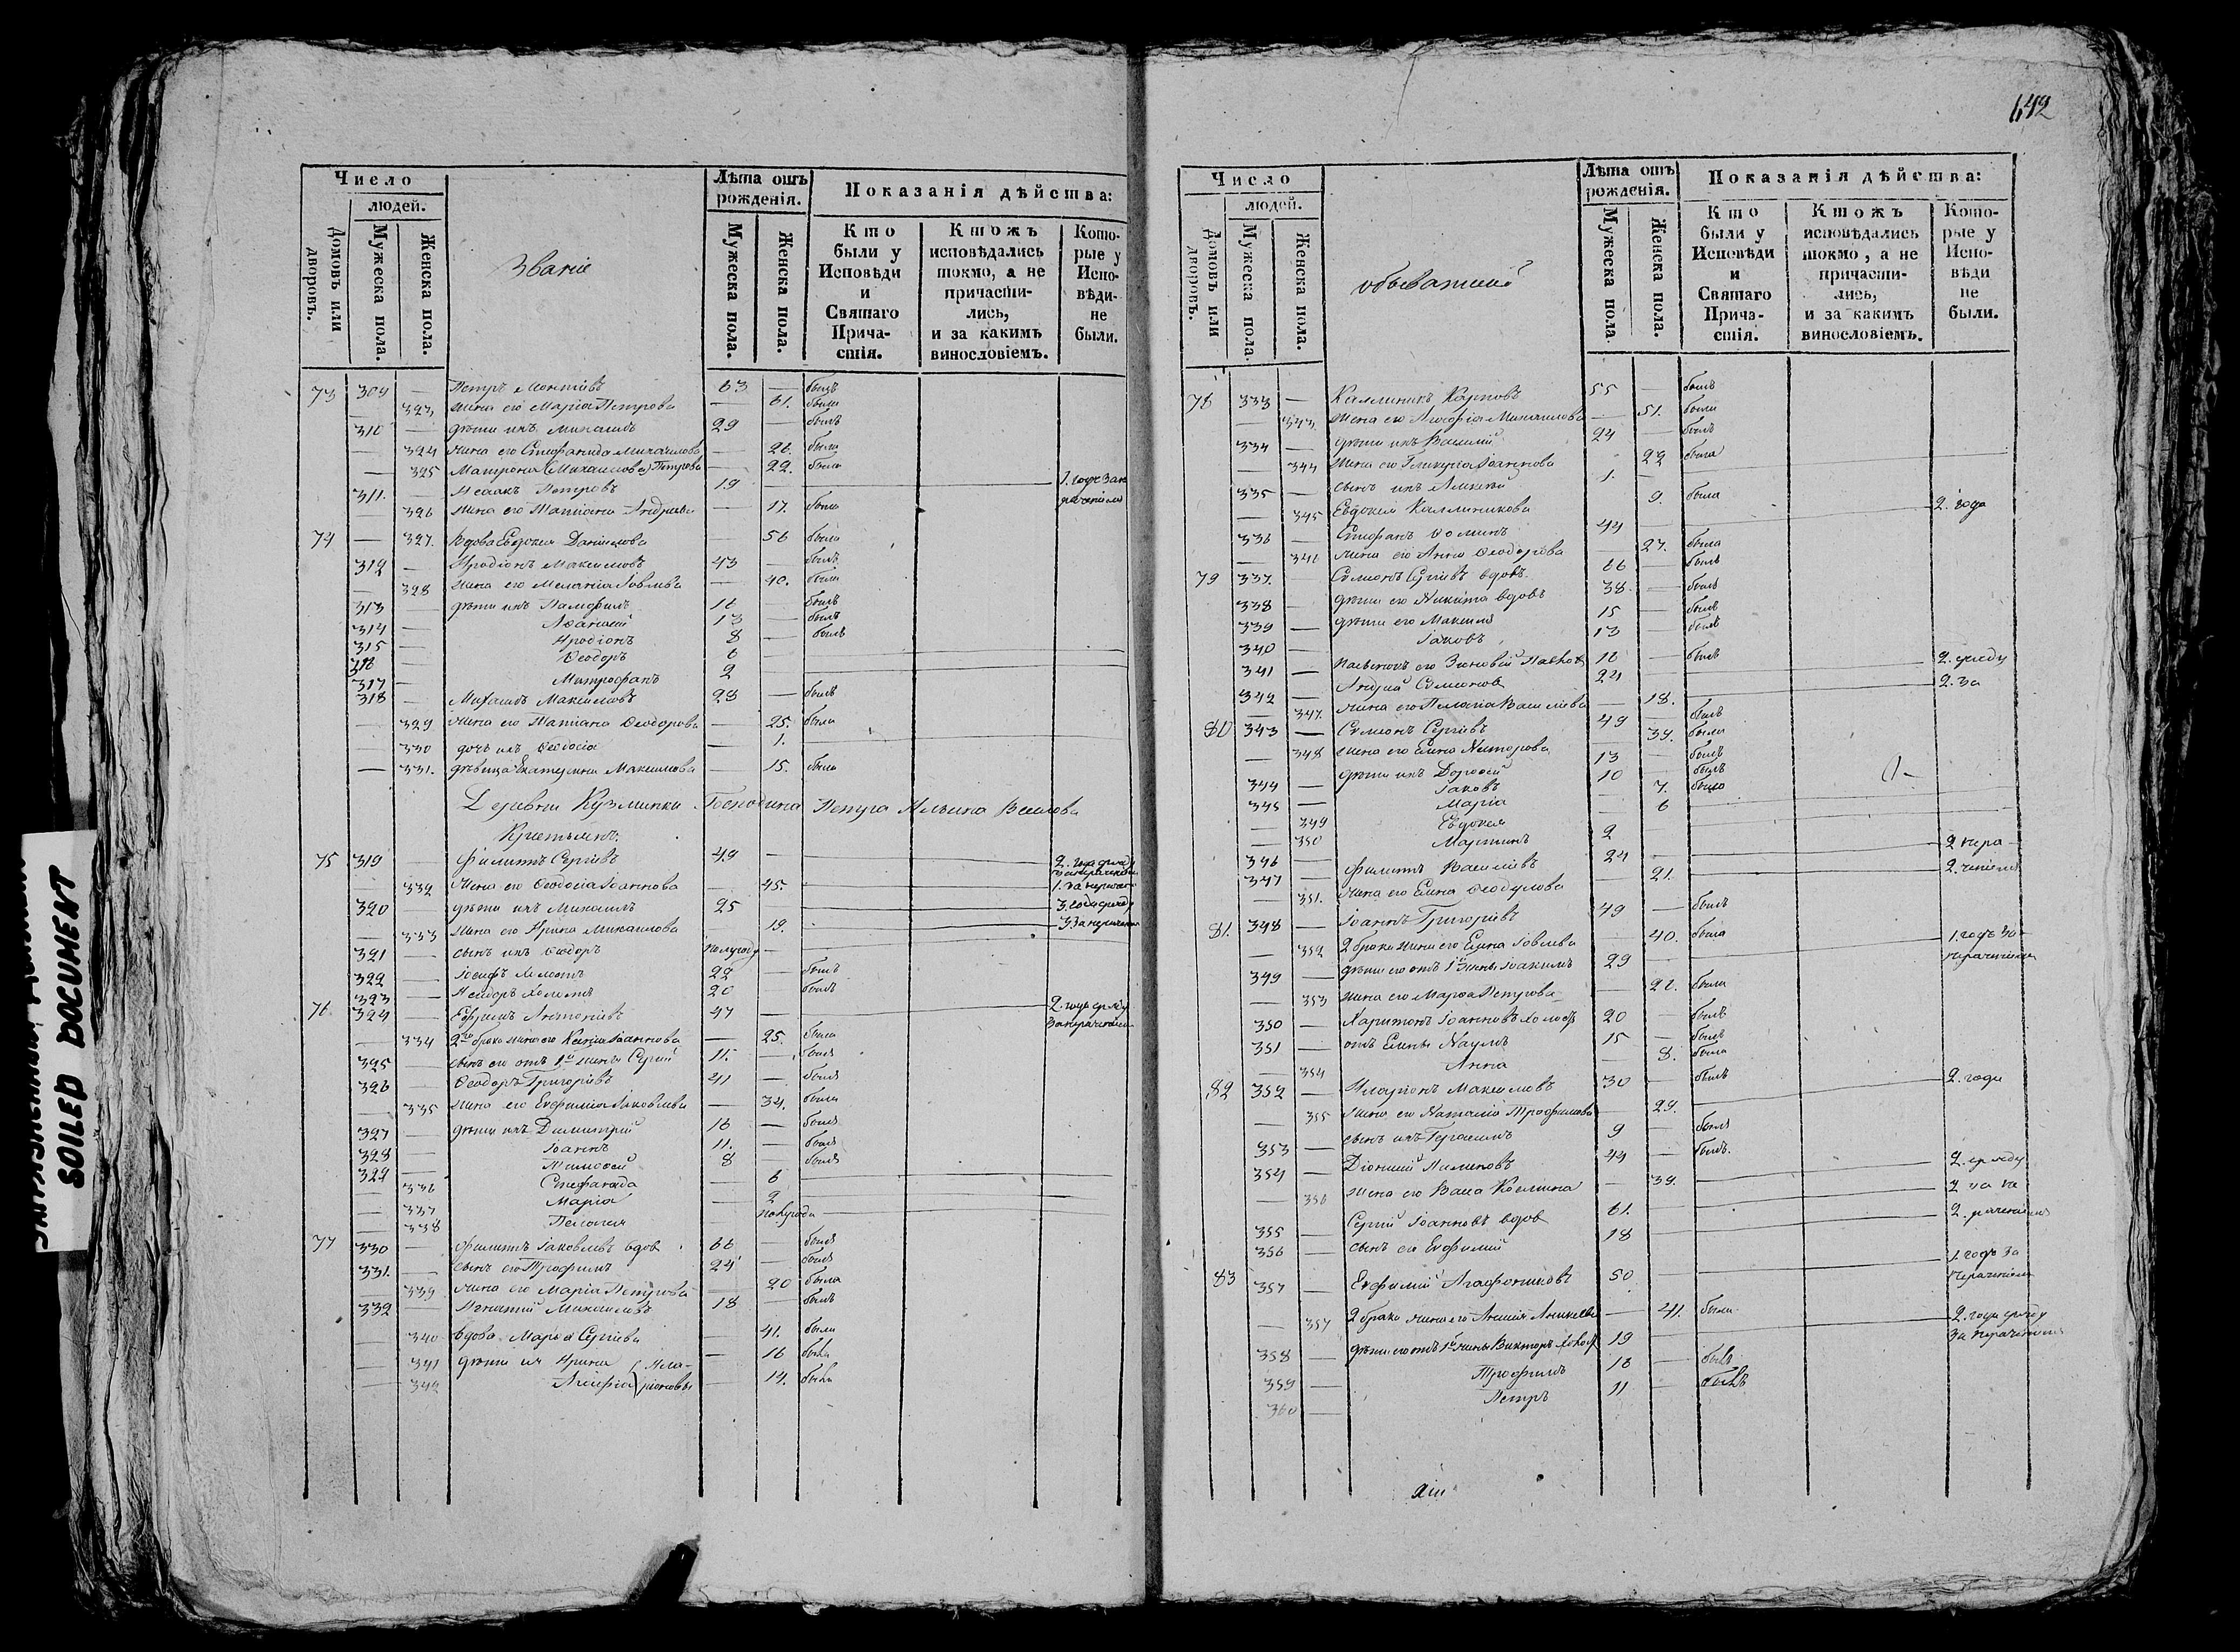 SOILED DOCUMENT
Число
людей.
Домовъ или дворовъ.
Мужеска пола.
Женска пола.
Званіе
Лѣта отъ рожденія.
Мужеска пола.
Женска пола.
Показанія дѣйства:
Кто были у Исповѣди и Святаго Причастія.
Ктожъ исповѣдались токмо, а не причастились, и за какимъ винословіемъ.
Которые у Исповѣди не были.
73 309 — Петръ 63 — былъ
— 323 жена его Марія Петрова — 61. была
310 — дѣти ихъ Михаилъ 29 — былъ
— 324 жена его Стефанида Михаилова — 26. была
— 325 Матрона (Михаилова) Петрова — 22. была
311. — Исаакъ Петровъ 19 — 1. годъ за не
раченіемъ
— 326 жена его Татіана Андреева — 17. была
74 — 327. Вдова Евдокія Даніилова — 56 была
312 — Иродіонъ Максимовъ 43 — былъ
— 328 жена его Меланія Іовлева — 40. была
313 — дѣти ихъ Памфилъ 16 — былъ
314 — Афанасій 13 — былъ
315 — Иродіонъ 8 — былъ
316 — Ѳеодоръ 6 —
317 — Митрофанъ 2 —
318 — Михаилъ Максимовъ 28 — былъ
— 329 жена его Татіана Ѳеодорова — 25. была
— 330 дочь ихъ Ѳеодосія — 1.
— 331. дѣвица Екатерина Максимова — 15. была
Деревни Кузминки Господина Петра Ильина
Крестьянъ:
75 319 — Филиппъ Сергіевъ 49 — 2. года сряду
за нераченіемъ
— 332 жена его Ѳеодосія Іоаннова — 45. 1. за нерачен
320 — дѣти ихъ Михаилъ 25 — 3. года сряду
— 333 жена его Ирина Михаилова — 19. 3. за нерачен
321 — сынъ ихъ Ѳеодоръ полугоду —
322 — Іосифъ холостъ 22 — былъ
323 — Исидоръ холостъ 20 — былъ
76 324 — Ефремъ Антоніевъ 47 — 2. года сряду
за нераченіемъ
— 334 2го брака жена его Ксенія Іоаннова — 25. была
325 — сынъ его отъ 1й жены Сергій 11. — былъ
326 — Ѳеодоръ Григоріевъ 41 — былъ
— 335 жена его Евфимія Іаковлева — 34. была
327 — дѣти ихъ Димитрій 16 — былъ
328 — Іоаннъ 11. — былъ
329 — Тимоѳей 8 — былъ
— 336 Стефанида — 6
— 337 Марія — 2
— 338 Пелагея — полугода
77 330 — Филиппъ Іаковлевъ вдов 66 — былъ
331. — сынъ его Трофимъ 24 — былъ
— 339 жена его Марія Петрова — 20 была
332 — Игнатій Михаиловъ 18 — былъ
— 340 вдова Марѳа Сергіева — 41. была
— 341 дѣти ея Ирина — 16 была
— 342 Агафія — 14. была
642
Число
людей.
Домовъ или дворовъ.
Мужеска пола.
Женска пола.
обывателей
Лѣта отъ рожденія.
Мужеска пола.
Женска пола.
Показанія дѣйства:
Кто были у Исповѣди и Святаго Причастія.
Ктожъ исповѣдались токмо, а не причастились, и за какимъ винословіемъ.
Которые у Исповѣди не были.
78 333 — Каллиникъ Карповъ 55 — былъ
— 343. жена его Агафія Михаилова — 51. была
334 — дѣти ихъ Василій 24 — былъ
— 344 жена его Гликерія Іоаннова 22 была
335 — сынъ ихъ Алексѣй 1. —
— 345 Евдокія Каллиникова 9. была
336 — Стефанъ Ѳоминъ 44 — 2. года
— 346 жена его Анна Ѳеодорова — 27. была
79 337. Симеонъ Сергіевъ вдовъ 66 — былъ
338 — дѣти его Никита вдовъ 38 — былъ
339 — дѣти его Максимъ 15 — былъ
340 — Іаковъ 13 — былъ
341 — пасынокъ его Зиновій 16 — былъ
342 — Андрей Симеоновъ 24 — 2. сряду
— 347. жена его Пелагія Васильева — 18. 2. за
80 343 — Симеонъ Сергіевъ 49 — былъ
— 348 жена его Елена Никторова 39. была
344 — дѣти ихъ Дороѳей 13 — былъ
345 — Іаковъ 10 — былъ
— 349 Марія — 7. была
— 350 Евдокія — 6
346 — Мартинъ 2
347 — Филиппъ Васильевъ 24 — 2. нера
— 351. жена его Елена Ѳеодулова — 21. 2. ченіемъ
81. 348 — Іоаннъ Григоріевъ 49 — былъ
— 352 2 брака жена его Елена Іовлева 40. была
349 — дѣти его отъ 1й жены Іоакимъ 29 — 1. годъ за
нераченіемъ
— 353 жена его Марѳа Петрова — 26. была
350 — Харитонъ Іоанновъ холост 20 — былъ
351 — отъ Елены Наумъ 15 — былъ
— 354 Анна — 8. была
82 352 — Иларіонъ Максимовъ 30 — былъ
— 355 жена его Наталія Трофимова — 29. 2. года
353 — сынъ ихъ Герасимъ 9 — былъ
354 — Діонисій Пименовъ 44 — былъ.
— 356 жена его Васса Космина — 39. 2. сряду
355 — Сергій Іоанновъ вдов 61. 2 за не
356 — сынъ его Евфимій 18 2. раченіемъ
83 357 — Евфимій Агафониковъ 50 — 1. годъ за
нераченіемъ
— 357 2 брака жена его — 41. была
358 — дѣти его отъ 1й жены Викторъ холост 19 2. года сряду
за нераченіемъ
359 — Трофимъ 16 — былъ
360 — Петръ 11 — былъ